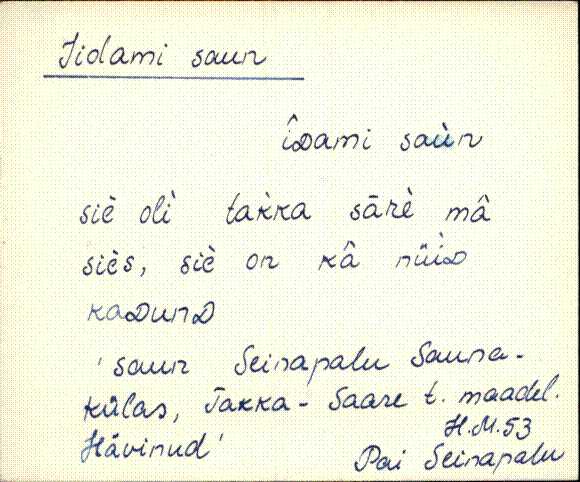 Iidami saun
îDami saùn
siè olì takka sārè mâ
siès, siè on kâ nüìD
kaDunD
'saun Seinapalu Sauna-
külas, Takka-Saare t. maadel.
Hävinud'
H.M.53
Pai Seinapalu